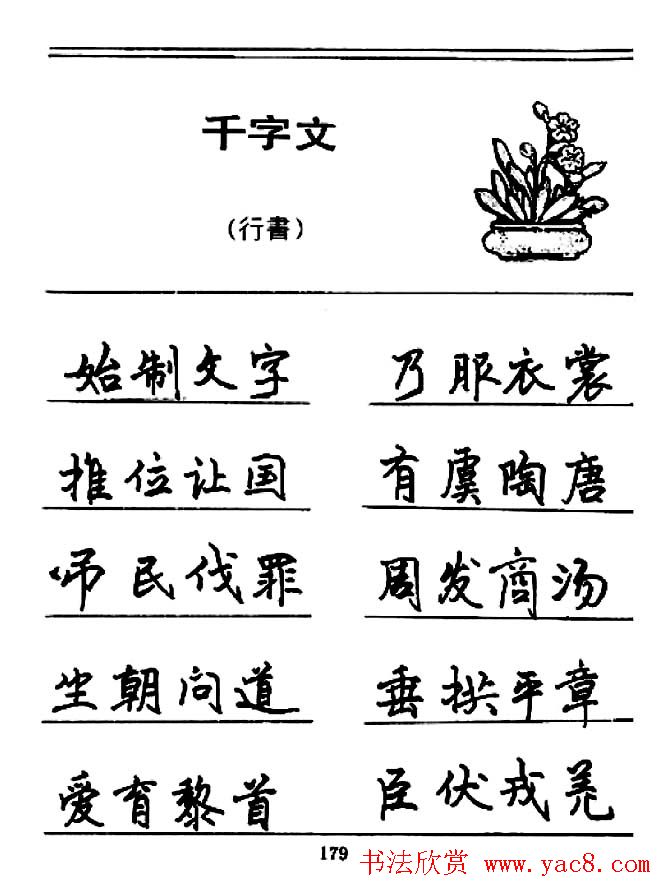 千字文
（行書）
始制文字　乃服衣裳
推位让国　有虞陶唐
吊民伐罪　周发商汤
坐朝问道　垂拱平章
爱育黎首　臣伏戎羌
179
书法欣赏 www.yac8.com